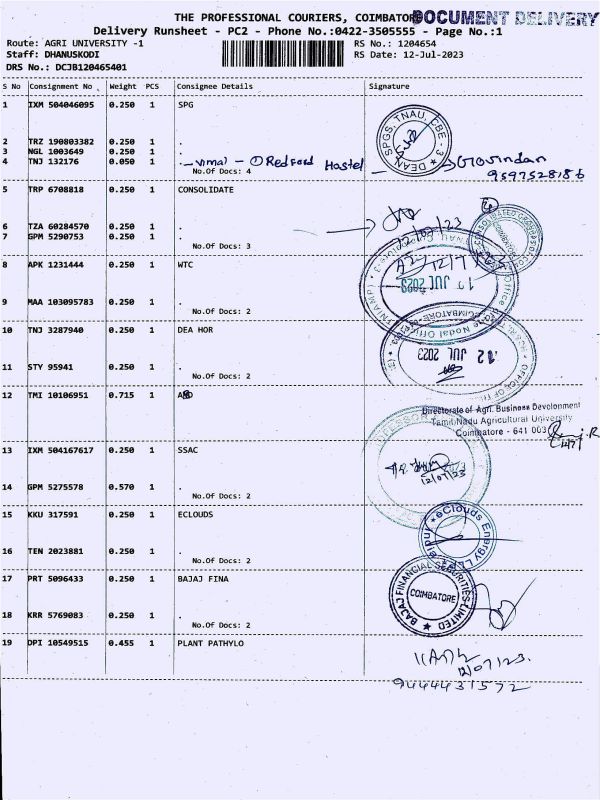 THE PROFESSIONAL COURIERS, COIMBATOR
DOCUMENT DELIVERY
Delivery Runsheet - PC2 - Phone No.:0422-3505555 - Page No.:1
Route: AGRI UNIVERSITY -1
RS No.: 1204654
Staff: DHANUSKODI
RS Date: 12-Jul-2023
DRS No.: DCJB120465401
S No Consignment No Weight PCS Consignee Details Signature
1 IXM 504046095 0.250 1 SPG
DEAN, SPGS, TNAU, CBE - 3
2 TRZ 190803382 0.250 1 .
3 NGL 1003649 0.250 1 .
4 TNJ 132176 0.050 1 . - Vimal - ① Redford Hostel
Govindan
No.Of Docs: 4
9597528186
5 TRP 6708818 0.250 1 CONSOLIDATE
6 TZA 60284570 0.250 1 .
12/07/23
7 GPM 5290753 0.250 1 .
No.Of Docs: 3
8 APK 1231444 0.250 1 WTC
JUL 2023
9 MAA 103095783 0.250 1 .
No.Of Docs: 2
10 TNJ 3287940 0.250 1 DEA HOR
12 JUL 2023
11 STY 95941 0.250 1 .
No.Of Docs: 2
12 TMI 10106951 0.715 1
Directorate of Agri. Business Development
Tamil Nadu Agricultural University
Coimbatore - 641 003
13 IXM 504167617 0.250 1 SSAC
12/07/23
14 GPM 5275578 0.570 1 .
No.Of Docs: 2
15 KKU 317591 0.250 1 ECLOUDS
eClouds Energy
16 TEN 2023881 0.250 1 .
No.Of Docs: 2
17 PRT 5096433 0.250 1 BAJAJ FINA
BAJAJ FINANCIAL SECURITIES LIMITED
COIMBATORE
18 KRR 5769083 0.250 1 .
No.Of Docs: 2
19 DPI 10549515 0.455 1 PLANT PATHYLO
12/07/23.
9444431572